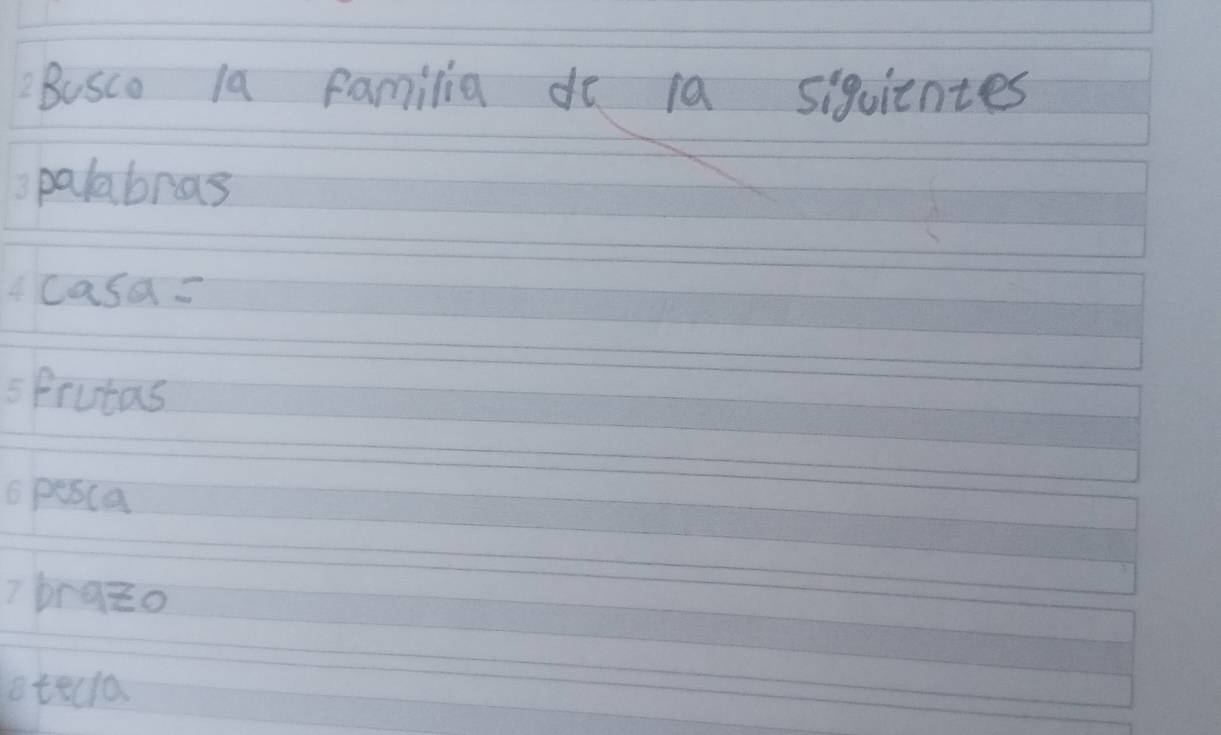 2 Busco la familia de la siguientes
3 palabras
4 casa =
5 frutas
6 pesca
7 brazo
8 tecla